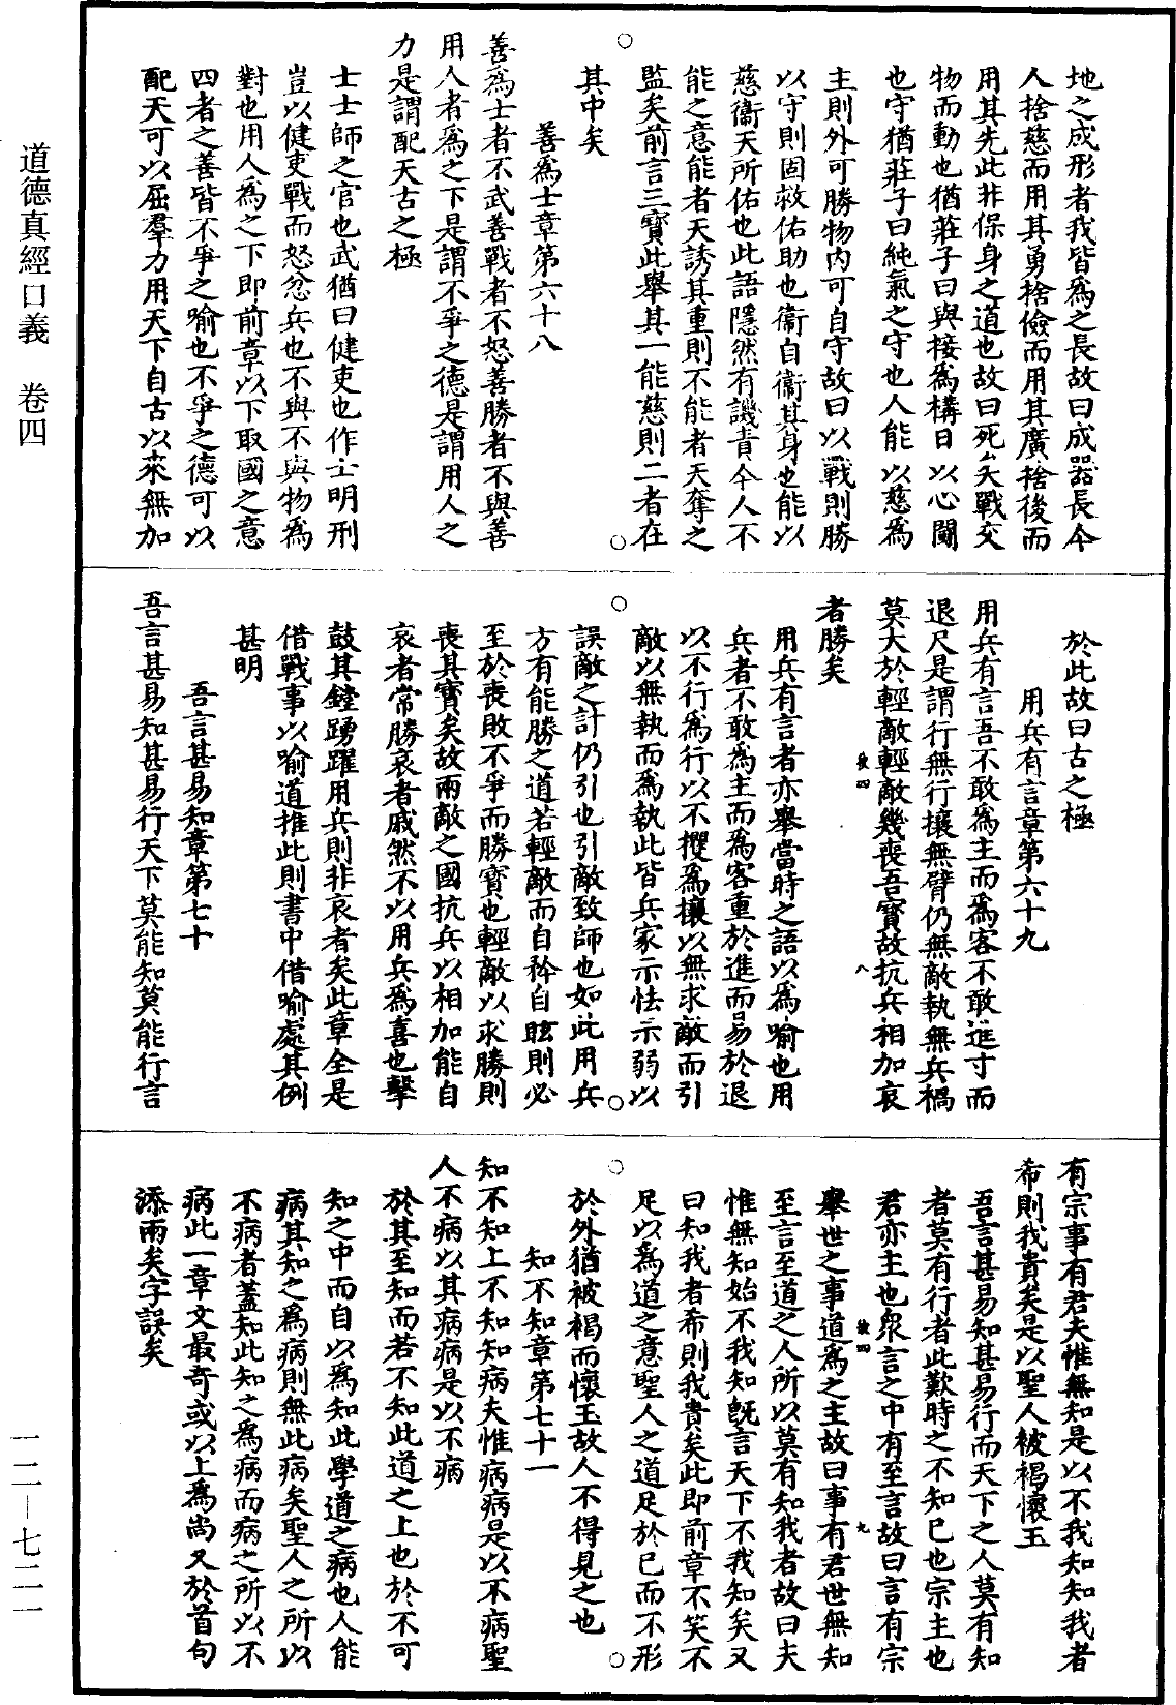 地之成形者我皆爲之長故曰成器長今
人捨慈而用其勇捨儉而用其廣捨後而
用其先此非保身之道也故曰死矣戰交
物而動也猶莊子曰與接爲構日以心鬪
也守猶莊子曰純氣之守也人能以慈爲
主則外可勝物内可自守故曰以戰則勝
以守則固救佑助也衞自衞其身也能以
慈衞天所佑也此語隱然有譏責今人不
能之意能者天誘其重則不能者天奪之
監矣前言三寶此舉其一能慈則二者在
其中矣
善爲士章第六十八
善爲士者不武善戰者不怒善勝者不與善
用人者爲之下是謂不爭之德是謂用人之
力是謂配天古之極
士士師之官也武猶曰健吏也作士明刑
豈以健吏戰而怒忿兵也不與不與物爲
對也用人爲之下即前章以下取國之意
四者之善皆不爭之喻也不爭之德可以
配天可以屈羣力用天下自古以來無加
於此故曰古之極
用兵有言章第六十九
用兵有言吾不敢爲主而爲客不敢進寸而
退尺是謂行無行攘無臂仍無敵執無兵禍
莫大於輕敵輕敵幾喪吾寶故抗兵相加哀
者勝矣
用兵有言者亦舉當時之語以爲喻也用
兵者不敢爲主而爲客重於進而易於退
以不行爲行以不攘爲攘以無求敵而引
敵以無執而爲執此皆兵家示怯示弱以
誤敵之計仍引也引敵致師也如此用兵
方有能勝之道若輕敵而自矜自眩則必
至於喪敗不爭而勝寶也輕敵以求勝則
喪其寶矣故兩敵之國抗兵以相加能自
哀者常勝哀者戚然不以用兵爲喜也擊
鼓其鏜踴躍用兵則非哀者矣此章全是
借戰事以喻道推此則書中借喻處其例
甚明
吾言甚易知章第七十
吾言甚易知甚易行天下莫能知莫能行言
有宗事有君夫惟無知是以不我知知我者
希則我貴矣是以聖人被褐懷玉
吾言甚易知甚易行而天下之人莫有知
者莫有行者此歎時之不知已也宗主也
君亦主也衆言之中有至言故曰言有宗
舉世之事道爲之主故曰事有君世無知
至言至道之人所以莫有知我者故曰夫
惟無知始不我知既言天下不我知矣又
曰知我者希則我貴矣此即前章不笑不
足以爲道之意聖人之道足於已而不形
於外猶被褐而懷玉故人不得見之也
知不知章第七十一
知不知上不知知病夫惟病病是以不病聖
人不病以其病病是以不病
於其至知而若不知此道之上也於不可
知之中而自以爲知此學道之病也人能
病其知之爲病則無此病矣聖人之所以
不病者蓋知此知之爲病而病之所以不
病此一章文最奇或以上爲尚又於首句
添兩矣字誤矣
道德真經口義　卷四
一二—七二一